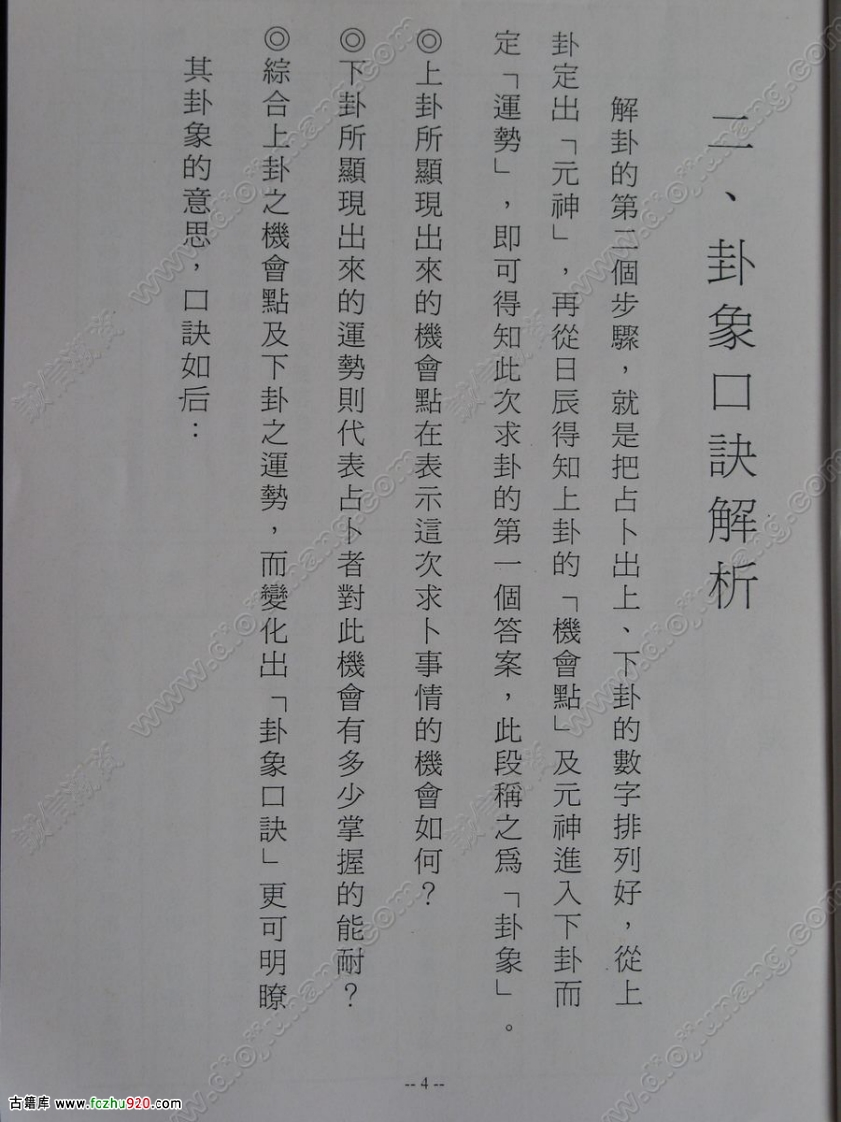 二、卦象口訣解析
解卦的第二個步驟，就是把占卜出上、下卦的數字排列好，從上
卦定出「元神」，再從日辰得知上卦的「機會點」及元神進入下卦而
定「運勢」，即可得知此次求卦的第一個答案，此段稱之爲「卦象」。
◎上卦所顯現出來的機會點在表示這次求卜事情的機會如何？
◎下卦所顯現出來的運勢則代表占卜者對此機會有多少掌握的能耐？
◎綜合上卦之機會點及下卦之運勢，而變化出「卦象口訣」更可明瞭
其卦象的意思，口訣如后：
-- 4 --
古籍库 www.fczhu920.com